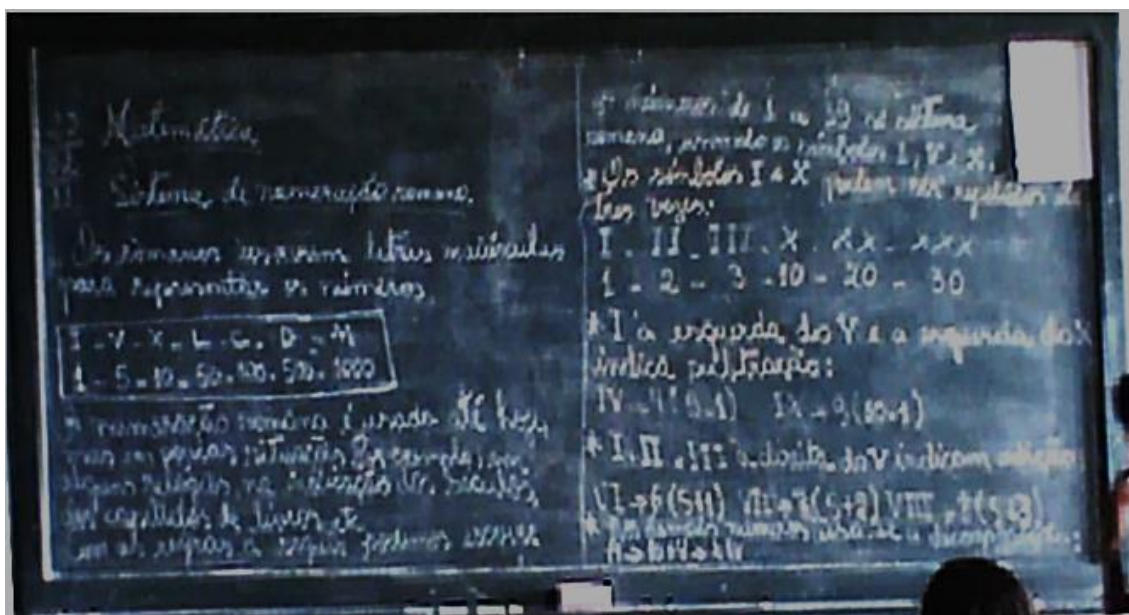 Matemática
Sistema de numeração romano.
Os romanos usavam letras maiúsculas
para representar os números.
I - V - X - L - C - D - M
1 - 5 - 10 - 50 - 100 - 500 - 1000
A numeração romana é usada até hoje
em situações Por exemplo, em
alguns relógios na indicação de séculos,
capítulos de livros etc
as regras a seguir podemos escrever
números de 1 a 39 no sistema
romano, usando os símbolos I, V e X.
* Os símbolos I e X podem ser repetidos até
três vezes:
I - II - III - X - XX - XXX
1 - 2 - 3 - 10 - 20 - 30
* I à esquerda do V e a esquerda do X
indica subtração:
IV → 4 (5-1) IX → 9 (10-1)
* I, II, III à direita do V indicam adição
VI → 6 (5+1) VII → 7 (5+2) VIII → 8 (5+3)
* números usa-se a decomposição: